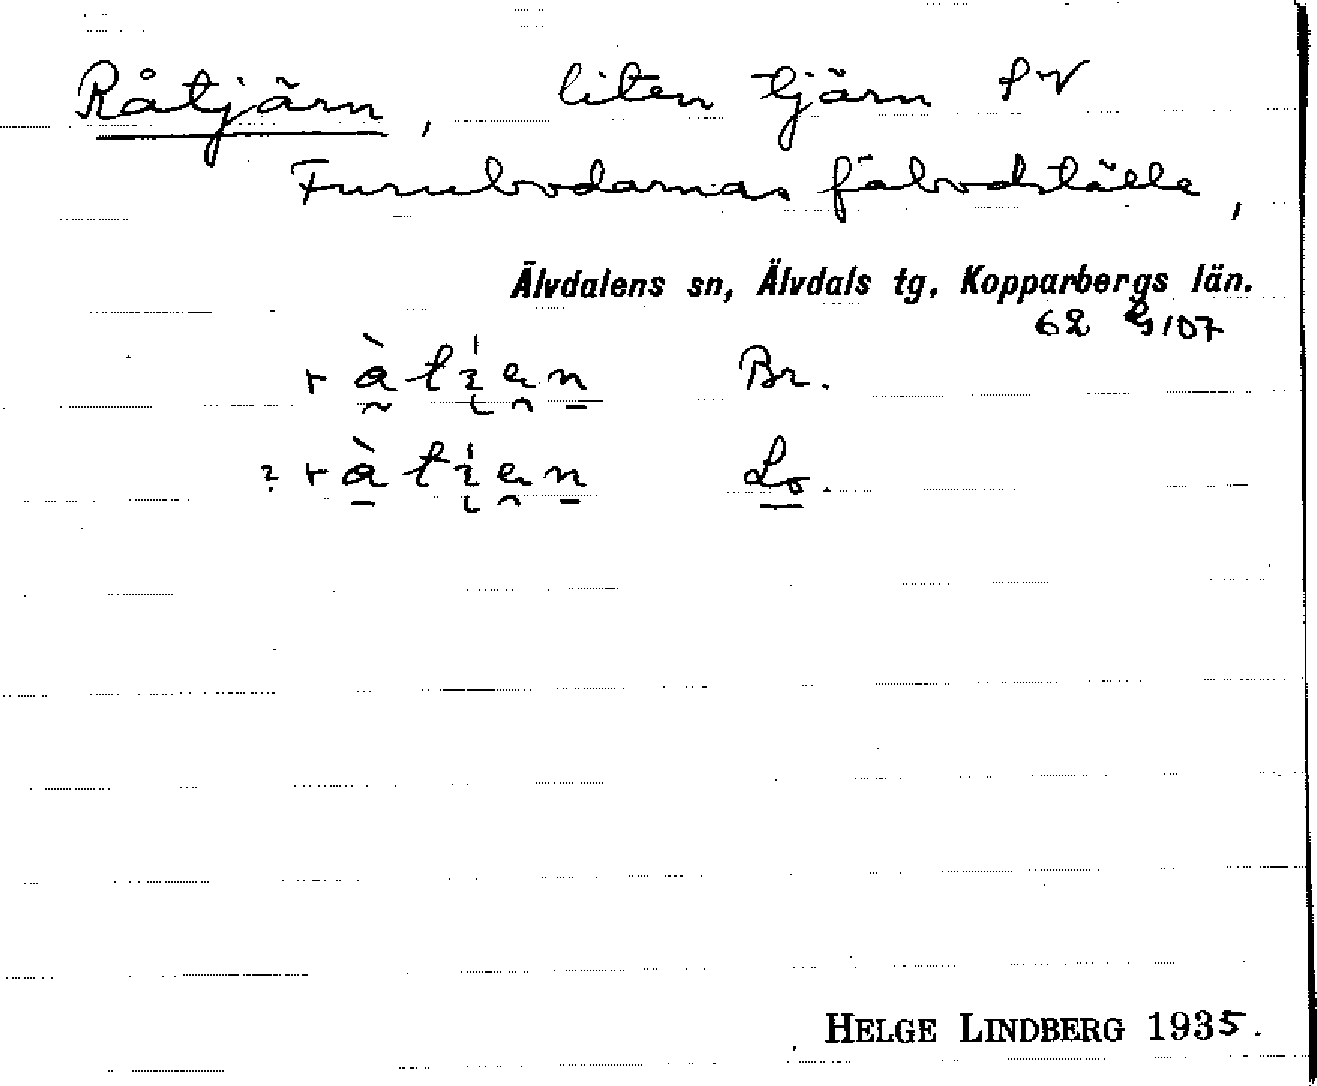 Råtjärn, liten tjärn SV
Furubodarnas fäbodställe,
Älvdalens sn, Älvdals tg. Kopparbergs län.
62 G 107
Br.
? Lo.
HELGE LINDBERG 1935.